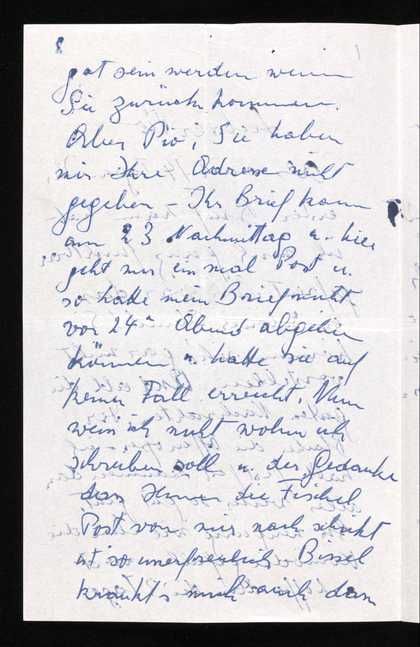 8
gut sein werden wenn
Sie zurück kommen.
Aber Pio, Sie haben
mir Ihre Adresse nicht
gegeben – Ihr Brief kam
am 23 Nachmittag u. hier
geht nur einmal Post u.
so hatte mein Brief nicht
vor 24ⁿ Abend abgehen
können u. hatte sie auf
keinen Fall erreicht. Nun
weiss ich nicht wohin ich
schreiben soll u. der Gedanke
dass Ihnen die Fischel
Post von mir nach schickt
ist so unerfreulich. Bissel
kränkt's mich auch dass